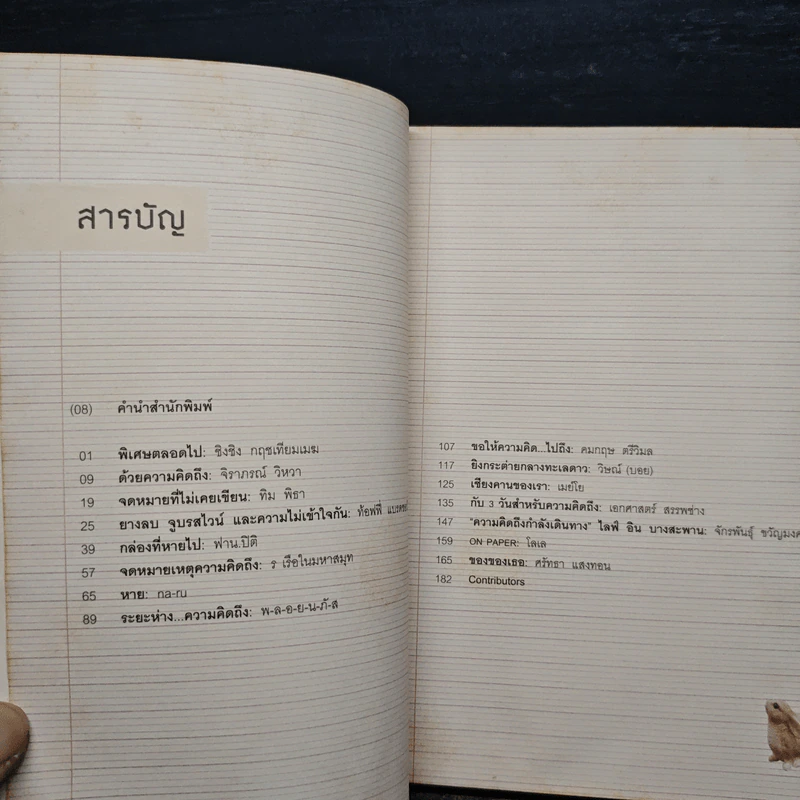 สารบัญ
(08) คำนำสำนักพิมพ์
01 พิเศษตลอดไป: ชิงชิง กฤชเทียมเมฆ
09 ด้วยความคิดถึง: จิราภรณ์ วิหวา
19 จดหมายที่ไม่เคยเขียน: ทิม พิธา
25 ยางลบ จูบรสไวน์ และความไม่เข้าใจกัน: ท้อฟฟี่
39 กล่องที่หายไป: ฟาน.ปีติ
57 จดหมายเหตุความคิดถึง: ร เรือในมหาสมุท
65 หาย: na-ru
89 ระยะห่าง...ความคิดถึง: พ-ล-อ-ย-น-ภั-ส
107 ขอให้ความคิด...ไปถึง: คมกฤษ ตรีวิมล
117 ยิงกระต่ายกลางทะเลดาว: วิษณ์ (บอย)
125 เชียงคานของเรา: เมย์โย
135 กับ 3 วันสำหรับความคิดถึง: เอกศาสตร์ สรรพช่าง
147 "ความคิดถึงกำลังเดินทาง" ไลฟ์ อิน บางสะพาน: จักรพันธุ์
159 ON PAPER: โลเล
165 ของของเธอ: ศรัทธา แสงทอน
182 Contributors